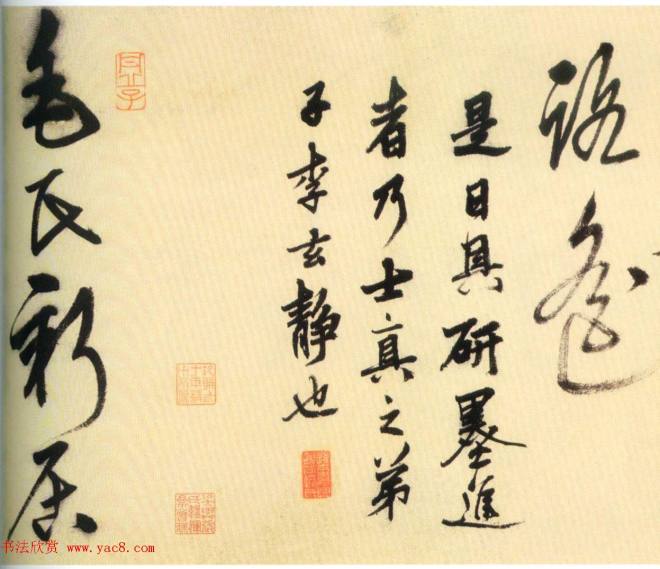 是日具研墨進
者乃士真之弟
子李玄靜也
毛氏新居
书法欣赏 www.yac8.com